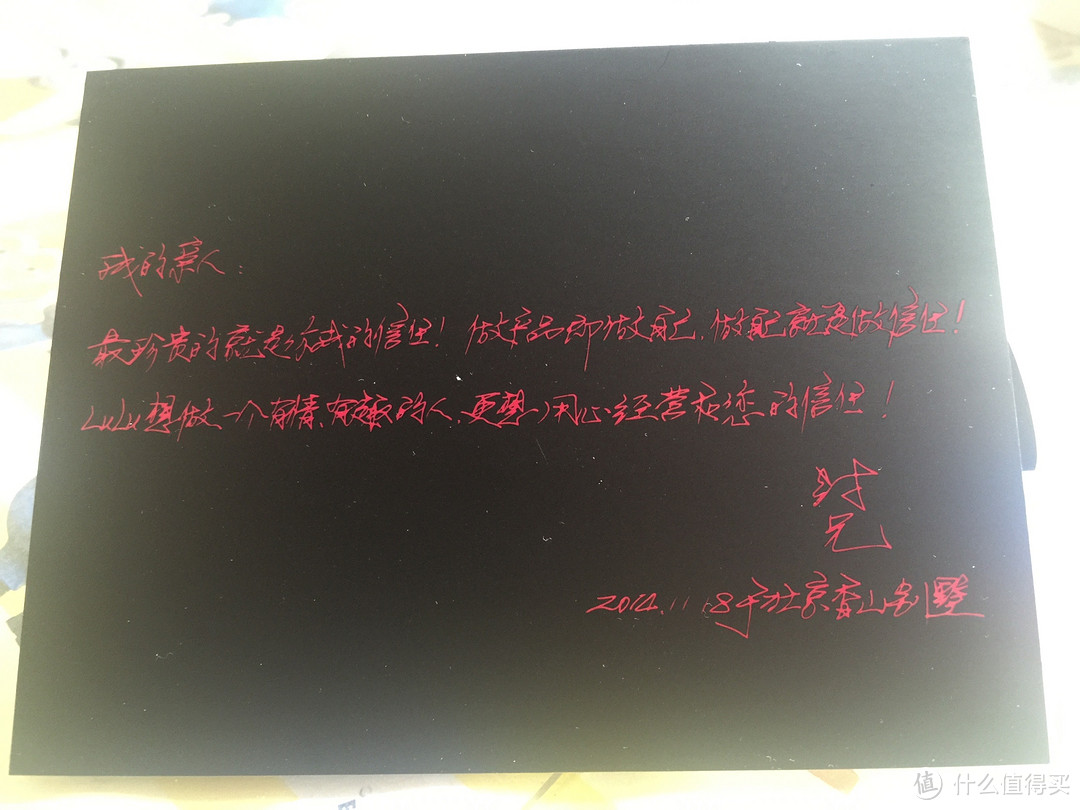 我的亲人：
最珍贵的就是你我的信任！做产品即做自己，做自己就是做信任！
LuLu想做一个有情、有趣的人，更想用心经营和您的信任！
兄
2014.11.8于北京香山别墅
值 什么值得买